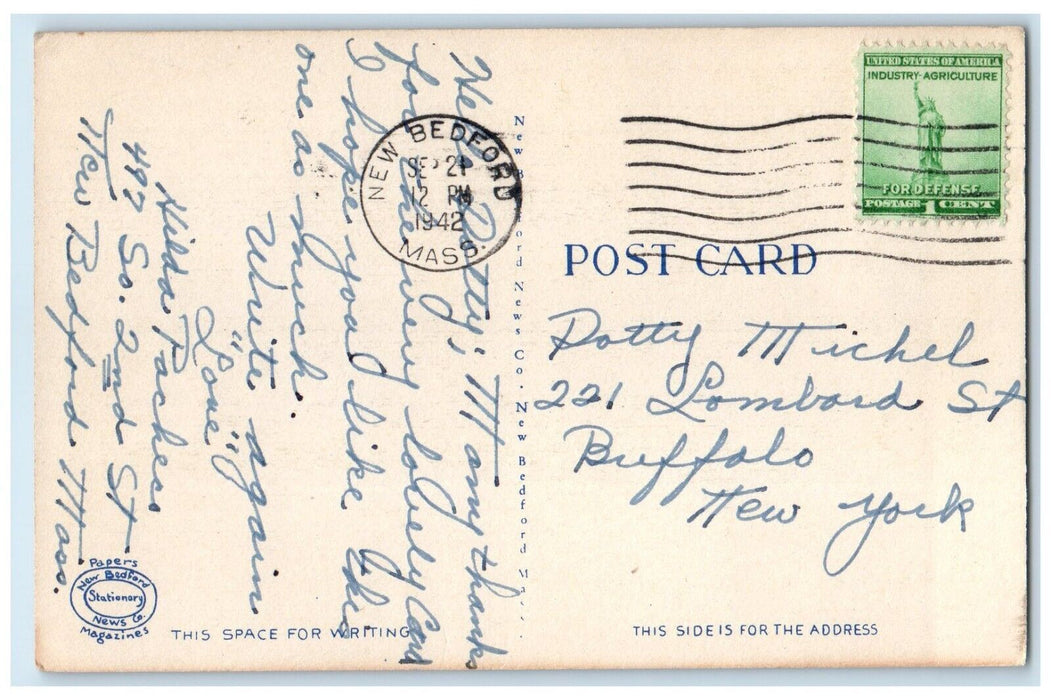 Well Dotty; Many thanks
for the very lovely card
I hope you like the
one as much.
Write again
"Love"
Hilda Pacheco
497 So. 2nd St
New Bedford Mass.
NEW BEDFORD
SEP 21
12 PM
1942
MASS.
UNITED STATES OF AMERICA
INDUSTRY-AGRICULTURE
FOR DEFENSE
POSTAGE 1 CENT
POST CARD
Dotty Michel
221 Lombard St
Buffalo
New York
New Bedford News Co. New Bedford Mass.
Papers
New Bedford
Stationery
News Co.
Magazines
THIS SPACE FOR WRITING
THIS SIDE IS FOR THE ADDRESS